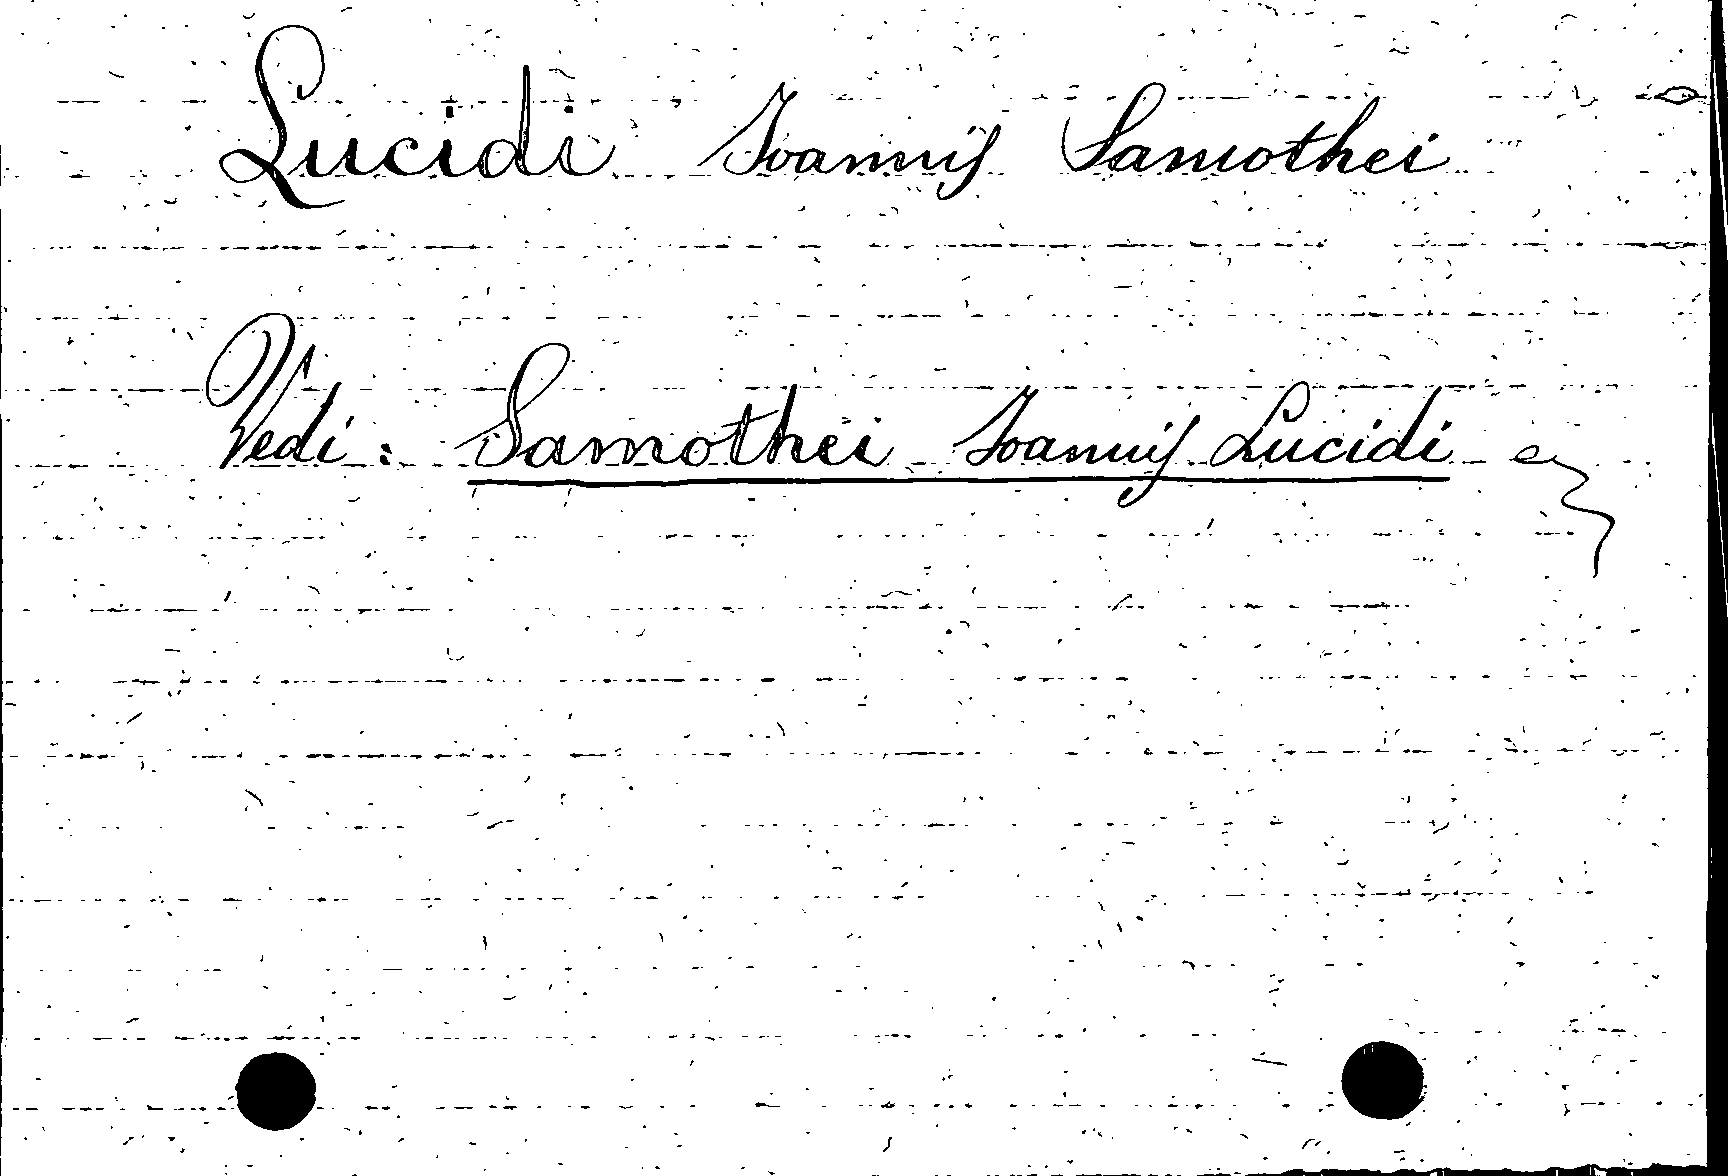 Lucidi Ioannis Samothei
Vedi: Samothei Ioannis Lucidi